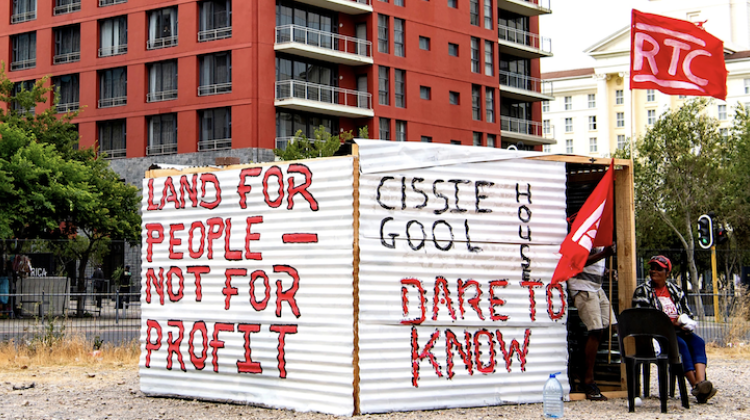 RTC
LAND FOR
PEOPLE —
NOT FOR
PROFIT
CISSIE
GOOL
HOUSE
DARE TO
KNOW